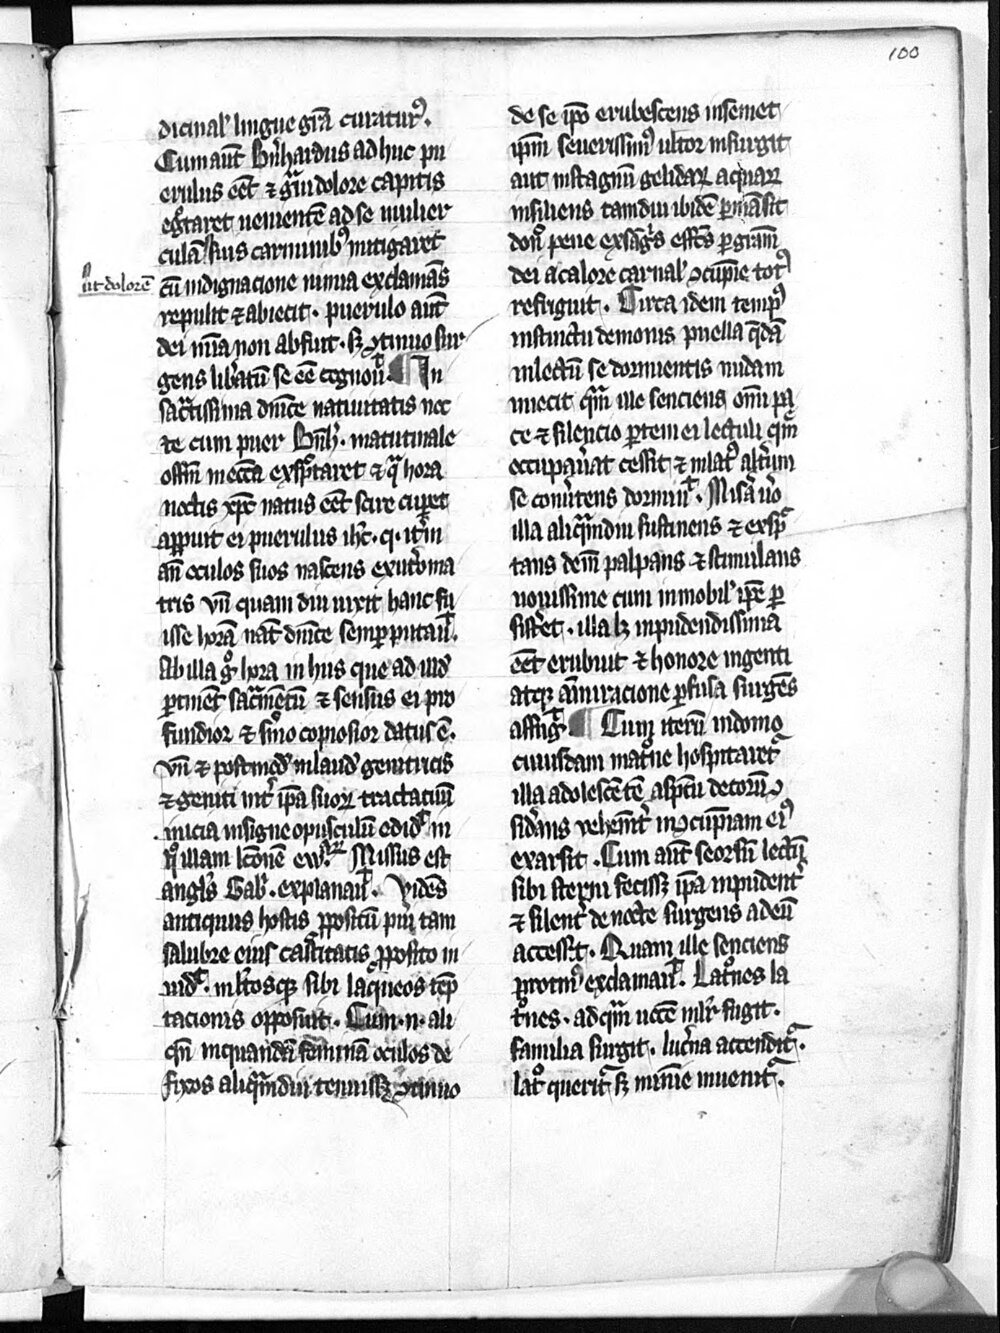 100
dicinal' lingue gr̄a curatur⁹.
Cum aūt Bn̄hardus ad huc pu
erulus eēt ⁊ gͣui dolore capitis
egͦtaret uenientē ad se mulier
culā ꝗ̄ suis carminib⁹ mitigaret
ut dolorē
cū indignacione nimia exclamās
repulit ⁊ abiecit. puerulo aūt
dei mīa non abfuit. sꝫ ꝯtinuo sur
gens lib'atū se eē cognouͥt. ¶ In
sacͣtissima dn̄ice natiuitatis noc
te cum puer Bn̄h. matutinale
offm̄ in ecc̄a exspͨtaret ⁊ qͣ hora
noctis xp̄c natus eēt scire cup̄et
apꝑuit ei puerulus ih̄c. q. it'um
an̄ oculos suos nascens ex ut'o ma
tris vn̄ quam diu uixit hanc fu
isse horā nat̄ dn̄ice semꝑ putauͥt.
Ab illa gͦ hora in hiis que ad illd̄
ꝑtinēt sacͣmētū ⁊ sensus ei pro
fundior ⁊ sm̊o copiosior datus ē.
Vn̄ ⁊ postmodū in laud' genitricis
⁊ geniti int' ip̄a suoꝝ tractatuū
inicia insigne opusculū edidͥt in
ꝗ illam lc̄onē ew̄. Missus est
angl's Gab'. explanauͥt. Vidēs
antiquus hostis ꝓpositū pu'i tam
salubre eius castitatis ꝓposito in
uidͥt. ml'tosqꝫ sibi laqueos tēp
tacionis opposuit. Cum .n. ali
qn̄ in quandā feminā oculos de
fixos aliqͣmdiu tenuissꝫ ꝯtinuo
de se ip̄o erubescens in semet
ip̄m seuerissim⁹ ultor insurgit
aut in stagnū gelidaꝝ aquaꝝ
insiliens tamdiu ibidē ꝑmāsit
don⁹ pene exsāg's effc̄s ꝑ gr̄am
dei a calore carnal' ꝯcupīe tot⁹
refriguit. Circa idem temp⁹
instinctu demonis puella q̄dā
in lectū se dormientis nudam
iniecit qͣm ille senciens om̄i pa
ce ⁊ silencio ꝑtem ei lectuli qͣm
occupau'at cessit ⁊ in lat⁹ alt'um
se conu'tens dormiuͥt. Mis'a u'o
illa aliqͣmdiu sustinens ⁊ exspͨ
tans dem̄ palpans ⁊ stimulans
nouissime cum inmobil' ip̄e ꝑ
sist'et. illa lꝫ inpudendissima
eēt erubuit ⁊ honore ingenti
atqꝫ am̄iracione ꝑfusa surgēs
aufugͥt ¶ Cum iterū in domo
cuiusdam matͦne hospitaretͬ
illa adolescētē aspc̄tu decorū ꝯ
sid'ans vehem̄t' in ꝯcup̄iam ei⁹
exarsit. Cum aūt seorsū lectū
sibi sterni fecissꝫ ip̄a inpudent'
⁊ silent' de nocte surgens ad eū
access't. Quam ille senciens
protin⁹ exclamauͥt. Latͦnes la
tͦnes. ad qͣm uocē ml'r fugit.
familia surgit. luc'na accenditͬ.
latͦ queritͬ sꝫ minīe inuenitͬ.